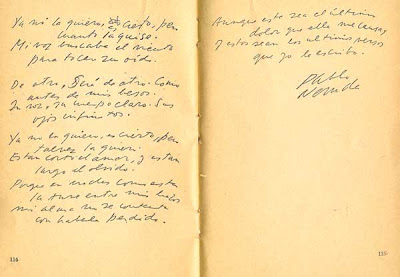 Ya no la quiero, es cierto, pero
cuanto la quise.
Mi voz buscaba el viento
para tocar su oído.
De otro. Será de otro. Como
antes de mis besos.
Su voz, su cuerpo claro. Sus
ojos infinitos.
Ya no la quiero, es cierto, pero
tal vez la quiero.
Es tan corto el amor, y es tan
largo el olvido.
Porque en noches como esta
la tuve entre mis brazos
mi alma no se contenta
con haberla perdido.
114
Aunque este sea el último
dolor que ella me causa,
y estos sean los últimos versos
que yo le escribo.
Pablo
Neruda
115